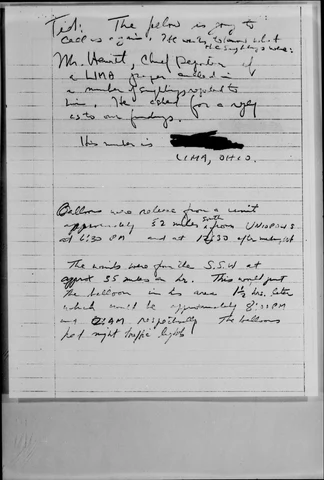 Ted: The fellow is going to
call us again. He wants to know what
the sightings were:
Mr. Hewitt, Chief Reporter of
a LIMA paper called in
a number of sightings reported to
him. He asked for a reply
as to our findings.
His number is
LIMA, OHIO.
Balloons were release from a unit
approximately 52 miles south from
at 6:30 PM and at 12:30 after midnight
The winds were from the S.S.W at
approx 35 miles an hr. This would put
the balloon in his area 1½ hrs. later
which would be approximately 8:00 PM
and 2AM respectively. The balloons
had night traffic lights